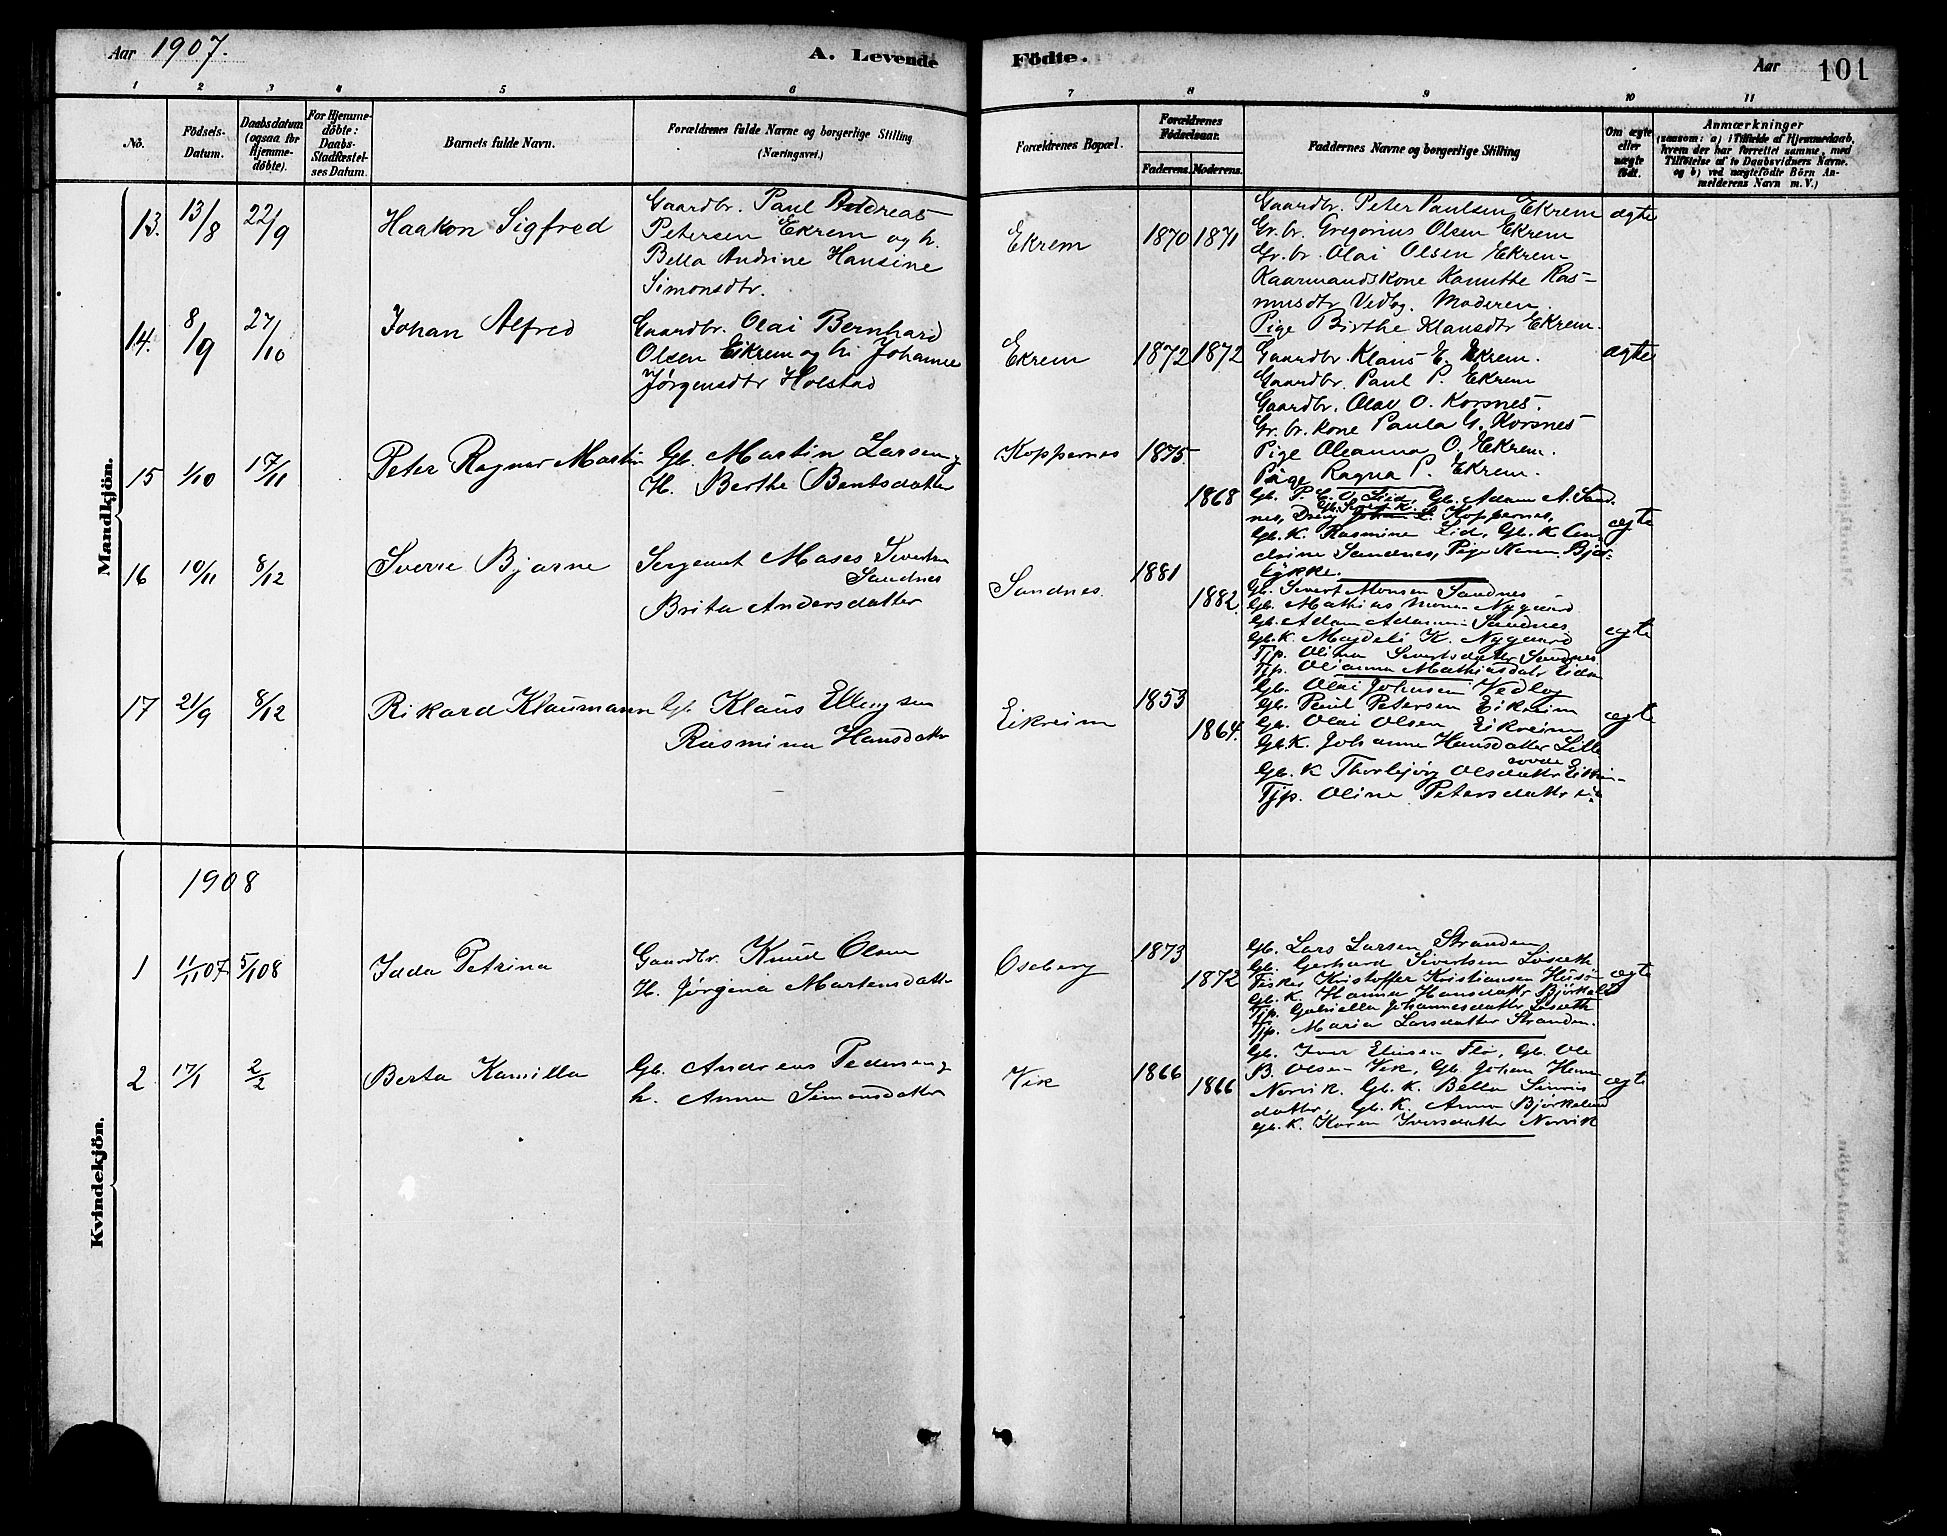 Aar 1907.
A. Levende
Födte.
Aar
101
1 2 3 4 5 6
7 8 9 10 11
No.
Födsels-
Datum.
Daabsdatum
(ogsaa for
Hjemme-
döbte).
For Hjemme-
döbte:
Daabs-
Stadfæstel-
ses Datum.
Barnets fulde Navn.
Forældrenes fulde Navne og borgerlige Stilling
(Næringsvei.)
Forældrenes Bopæl.
Forældrenes
Födselsaar.
Faderens. Moderens.
Faddernes Navne og borgerlige Stilling
Om ægte
eller
uægte
födt.
Anmærkninger
(saasom: a) i Tilfælde af Hjemmedaab,
hvem der har forrettet samme, med
Tilföielse af to Daabsvidners Navne.
og b) ved uægtefödte Börn An-
melderens Navn m. V.)
Mandkjön.
13. 13/8 22/9
Haakon Sigfred
Gaardbr. Paul Andreas
Petersen Ekrem og h.
Bella Andrine Hansine
Simonsdtr.
Ekrem
1870 1871
Gaardbr. Peter Paulsen Ekrem
Gr. br. Gregorius Olsen Ekrem
Gr. br. Olai Olsen Ekrem
Kaarmandskone Kanuthe Ras-
musdtr Vedlog. Moderen.
Pige Birthe Klausdtr Ekrem.
ægte
14. 8/9 27/10
Johan Alfred
Gaardbr. Olai Bernhard
Olsen Eikrem og h. Johanne
Jørgensdtr Holstad
Ekrem
1872 1872
Gaardbr. Klaus E. Ekrem.
Gaardbr. Paul P. Ekrem
Gaardbr. Olav O. Korsnes.
Gr. br. kone Paula G. Korsnes
Pige Oleanna O. Ekrem.
Pige Ragna P. Ekrem.
ægte
15 1/10 17/11
Peter Ragnar Martin
Gb. Martin Larsen og
H. Berthe Bentsdatter
Koppernes
1875.
1868
Gb. P. E. O. Lid, Gb. Adam A. Sand-
nes, Dreng Koppernes,
Gb. K. Rasmine Lid, Gb. K. An-
drine Sandnes, Pige Bjør-
lykke.
ægte
16 10/11 8/12
Sverre Bjarne
Sergeant Moses Sivertsen
Sandnes
Brita Andersdatter
Sandnes.
1881
1882.
Gb. Sivert Monsen Sandnes
Gb. Mathias Nygaard
Gb. Adam Sandnes
Gb. K. Majdeli K. Nygaard
Tjp. Olina Sivertsdatter Sandnes
Tjp. Olianna Mathiasdatr
ægte
17 21/9 8/12
Rikard Klausmann
Gb. Klaus Ellingsen
Rasmina Hansdattr
Eikreim
1853
1864.
Gb. Olai Johnsen Vedlog
Gb. Paul Petersen Eikreim
Gb. Olai Olsen Eikreim
Gb. K. Johanne Hansdatter Lille
Gb. K Thorbjørg Olsdattr
Tjp. Oline Petersdattr
ægte
Kvindekjön.
1908
1 11/11 07 5/1 08
Idda Petrina
Gaardbr. Knud Olsen
H. Jørgina Martensdattr
Oseberg
1873
1872
Gb. Lars Larsen Stranden
Gb. Gerhard Sivertsen Løseth
Fisker Kristoffer Kristiansen Husø
Gb. K. Hanna Hansdattr
Tjp. Gabriella Johannesdatter Løseth
Tjp. Maria Larsdatter Stranden.
ægte
2. 17/1 2/2
Berta Kamilla
Gb. Andreas Pedersen og
h. Anna Simonsdatter
Vik
1866
1866
Gb. Iver Eliesen Flø, Gb. Ole
B. Olsen Vik, Gb. Johan
Norvik. Gb. K. Bella
datter, Gb. K. Anna Bjørkelund
Gb. K. Karen Iversdatter Norvik
ægte